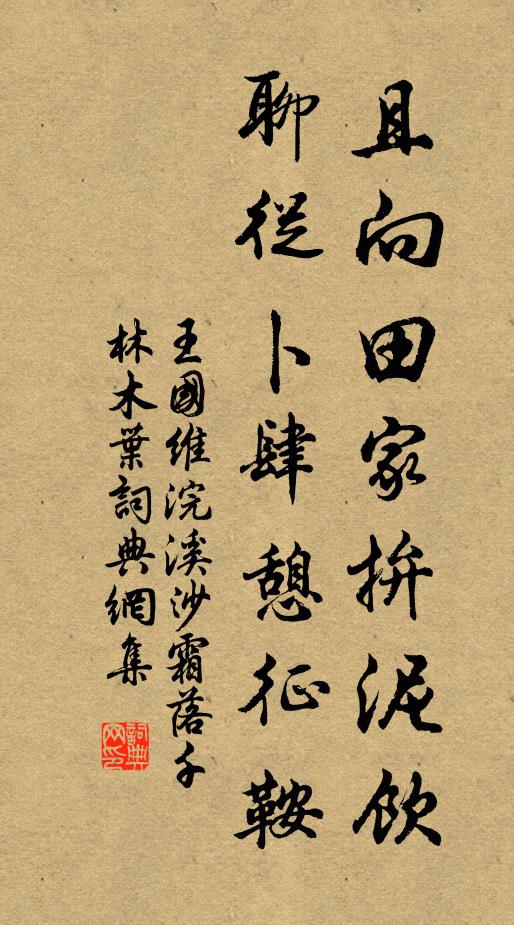 且向田家拚泥飲
聊從卜肆憩征鞍
王國維浣溪沙霜落千
林木葉詞典網集
詞典网印